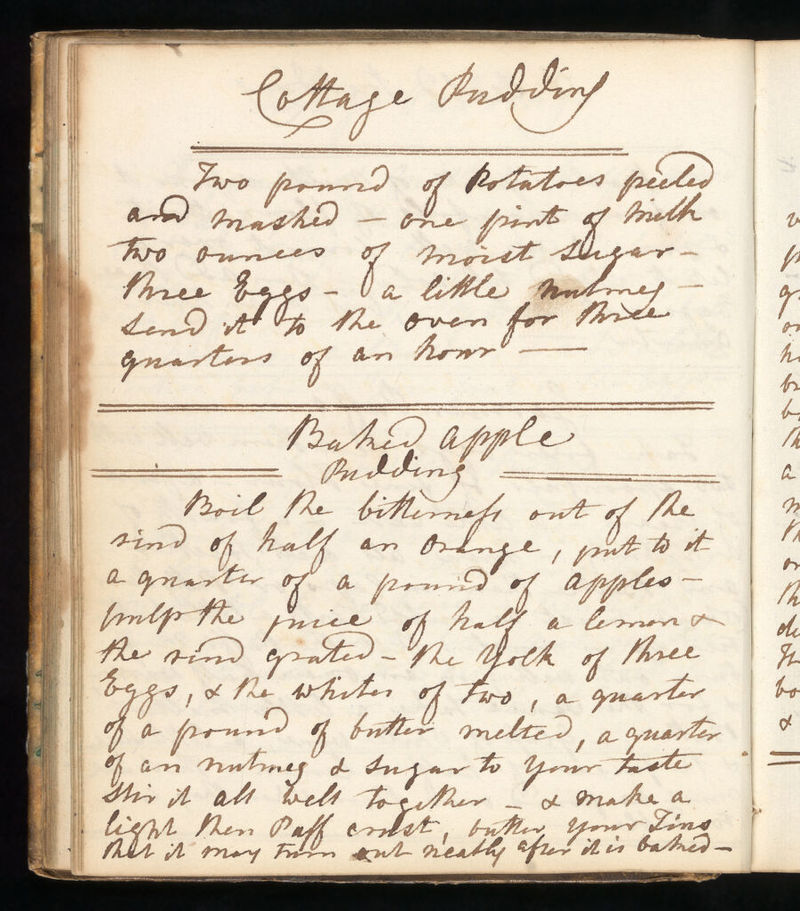 Cottage Pudding
Two pound of Potatoes peeled
and mashed – one pint of Milk
two ounces of moist Sugar –
three Eggs – a little nutmeg –
Send it to the oven for three
quarters of an hour —
Baked apple
Pudding
Boil the bitterness out of the
rind of half an Orange, put to it
a quarter of a pound of apples –
pulp the juice of half a lemon &
the rind grated – the Yolk of three
Eggs, & the whites of two, a quarter
of a pound of butter melted, a quarter
of an nutmeg & Sugar to your taste
Stir it all well together – & make a
light then Puff crust, butter your Tins
that it may turn out neatly after it is baked –